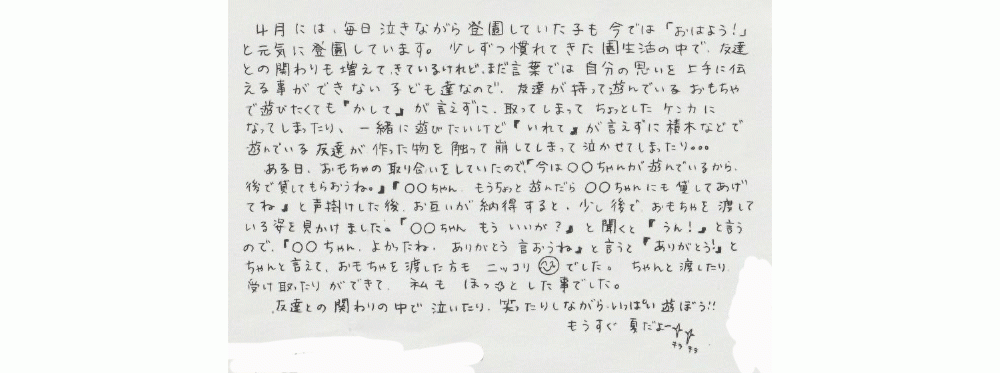 ４月には、毎日泣きながら登園していた子も今では「おはよう！」
と元気に登園しています。少しずつ慣れてきた園生活の中で、友達
との関わりも増えてきているけれど、まだ言葉では自分の思いを上手に伝
える事ができない子ども達なので、友達が持って遊んでいるおもちゃ
で遊びたくても『かして』が言えずに、取ってしまってちょっとしたケンカに
なってしまったり、一緒に遊びたいけど『いれて』が言えずに積木などで
遊んでいる友達が作った物を触って崩してしまって泣かせてしまったり。。。
ある日、おもちゃの取り合いをしていたので、『今は○○ちゃんが遊んでいるから、
後で貸してもらおうね。』『○○ちゃん、もうちょっと遊んだら○○ちゃんにも貸してあげ
てね』と声掛けした後、お互いが納得すると、少し後で、おもちゃを渡して
いる姿を見かけました。『○○ちゃん もういいが？』と聞くと『うん！』と言う
ので、『○○ちゃん、よかたね、ありがとう言おうね』と言うと『ありがとう！』と
ちゃんと言えて、おもちゃを渡した方もニッコリでした。ちゃんと渡したり、
受け取ったりができて、私もほっとした事でした。
友達との関わりの中で泣いたり、笑ったりしながら、いっぱい遊ぼう!!
もうすぐ夏だよー☆☆
キラキラ